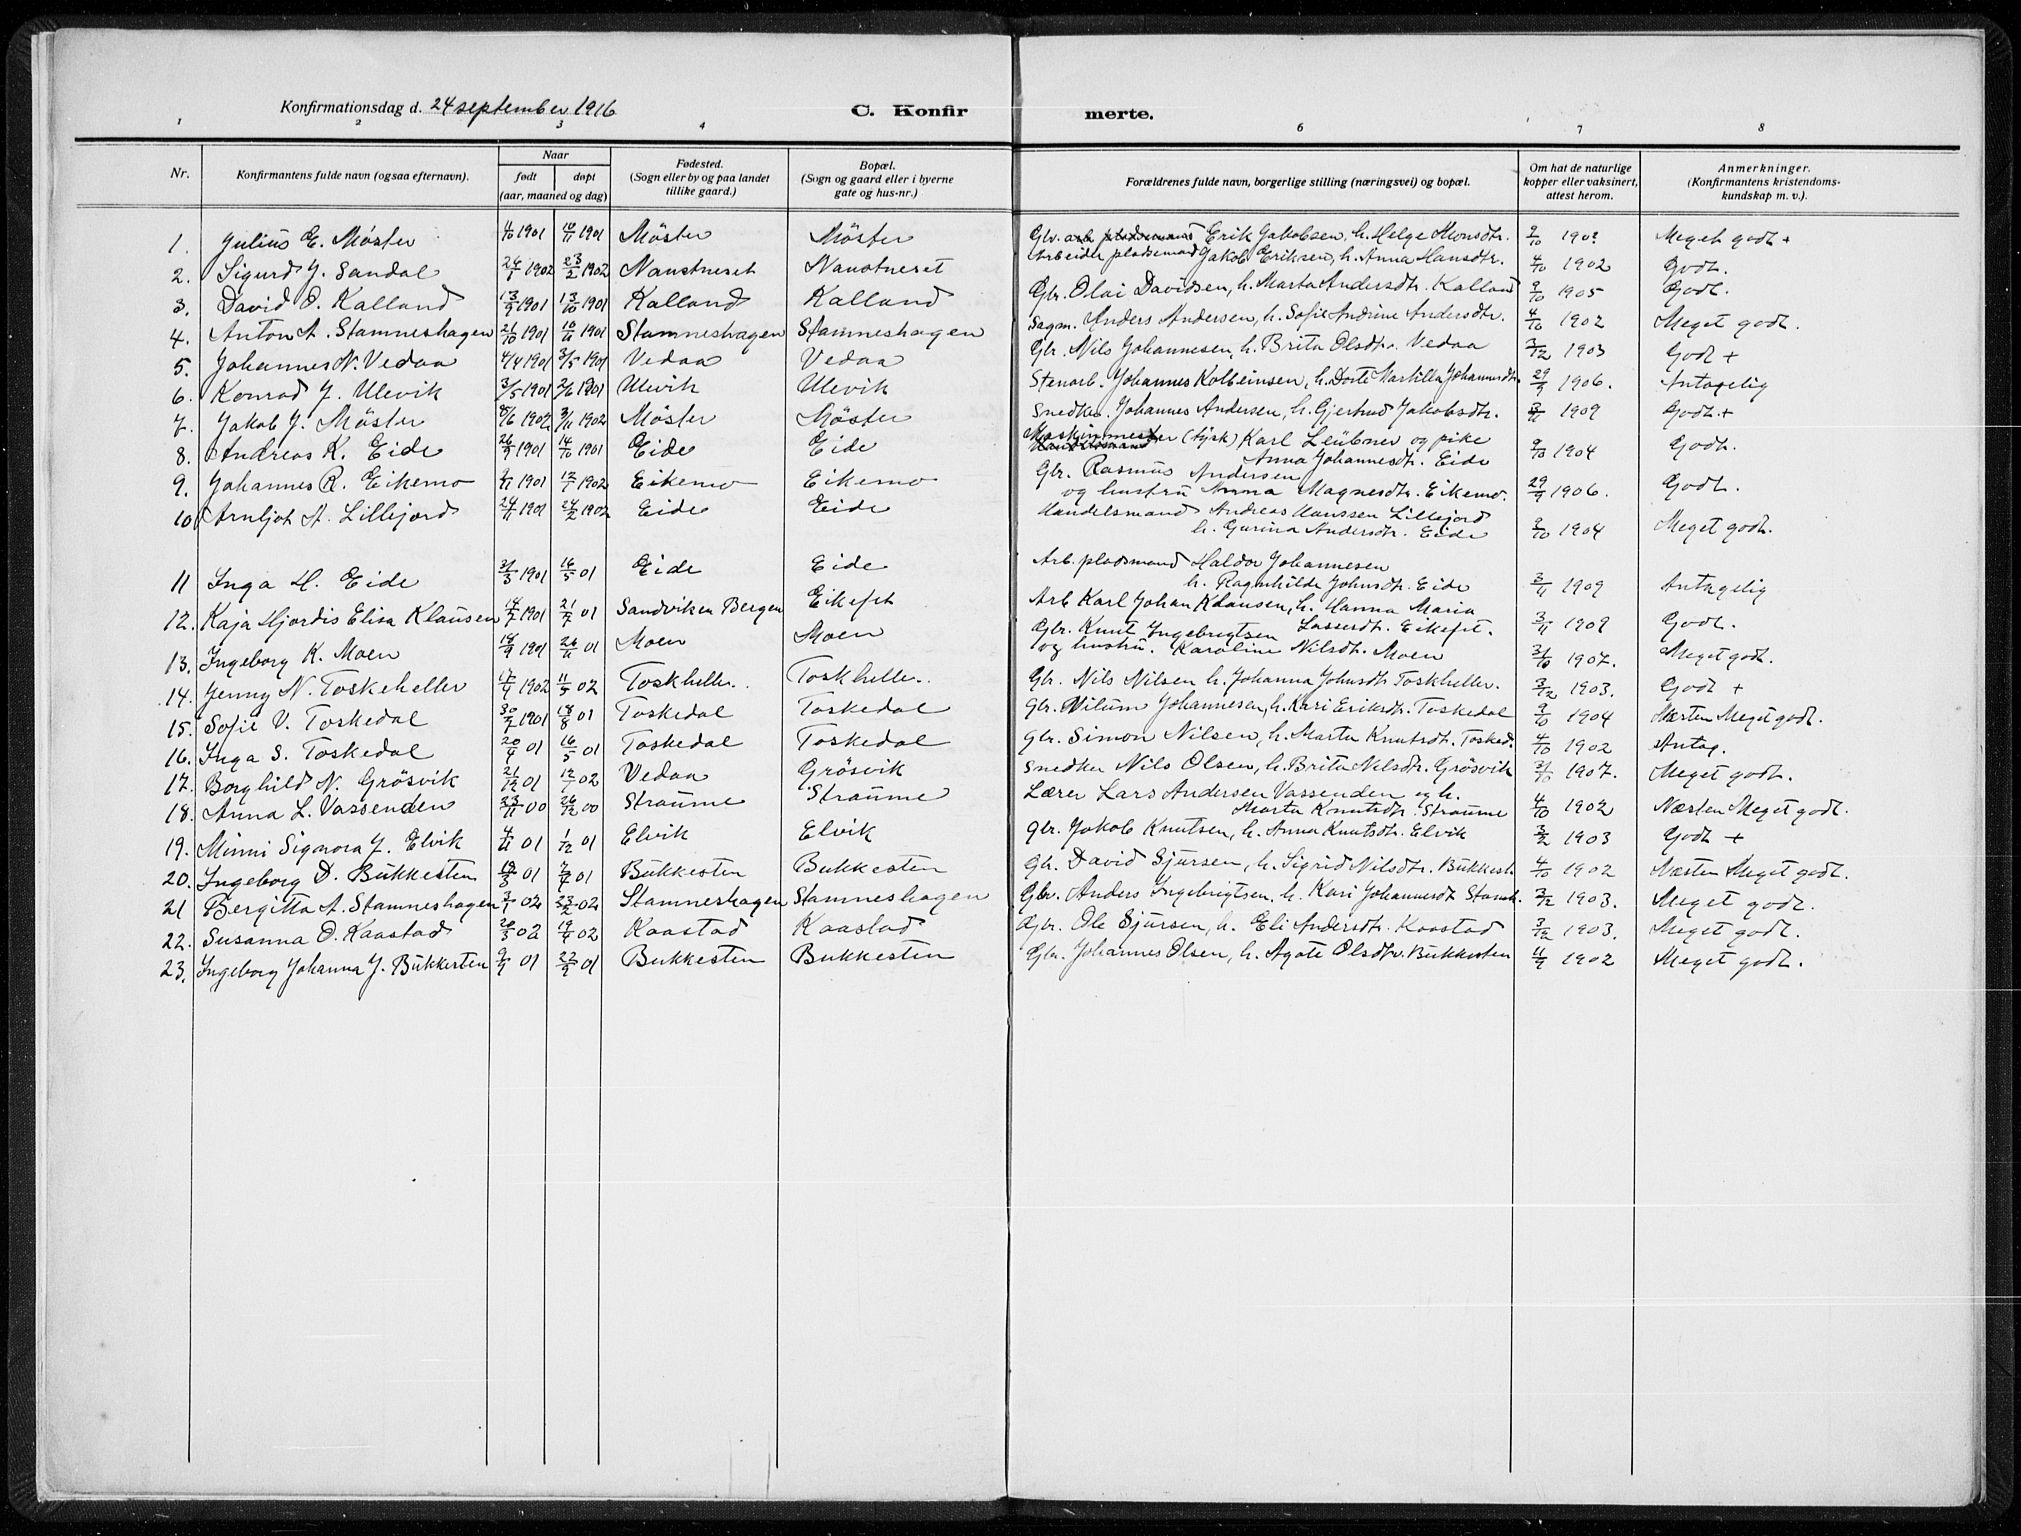 Konfirmationsdag d. 24 september 1916
C. Konfirmerte.
1 2 3 4 6 7 8
Nr. Konfirmantens fulde navn (ogsaa efternavn). Naar født døpt (aar, maaned og dag) Fødested. (Sogn eller by og paa landet tillike gaard.) Bopæl. (Sogn og gaard eller i byerne gate og hus-nr.) Forældrenes fulde navn, borgerlige stilling (næringsvei) og bopæl. Om hat de naturlige kopper eller vaksinert, attest herom. Anmerkninger. (Konfirmantens kristendomskundskap m. v.).
1. Julius E. Møster 4/10 1901 10/11 1901 Møster Møster Gbr. Erik Jakobsen, h. Helge Monsdtr. 2/10 Meget godt +
2. Sigurd J. Sandal 1902 23/2 1902 Naustneset Naustneset Arbeider pladsmand Jakob Eriksen, h. Anna Hansdtr. 4/10 1902 Godt.
3. David O. Kalland 13/9 1901 13/10 1901 Kalland Kalland Gbr. Olai Davidsen, h. Marta Andersdtr. Kalland 9/10 1905 Godt.
4. Anton A. Stamneshagen 21/10 1901 10/11 1901 Stamneshagen Stamneshagen Sagm. Anders Andersen, h. Sofie Andrine Andersdtr. 4/10 1902 Meget godt.
5. Johannes N. Vedaa 4/4 1901 3/5 1901 Vedaa Vedaa Gbr. Nils Johannesen, h. Brita Olsdtr. Vedaa 3/12 1903 Godt +
6. Konrad J. Ulevik 3/5 1901 2/6 1901 Ulevik Ulevik Stenarb. Johannes Kolbeinsen, h. Dorte Martilla Johannesdtr. 29/9 1906. Antagelig
7. Jakob J. Møster 8/6 1902 3/11 1902 Møster Møster Snedker Johannes Andersen, h. Gjertrud Jakobsdtr. 3/11 1909 Godt +
8. Andreas K. Eide 26/9 1901 14/10 1901 Eide Eide Maskinmester (tysk) Karl Leübner og pike
Anna Johannesdtr. Eide 9/10 1904 Godt.
9. Johannes R. Eikemo 1901 12/1 1902 Eikemo Eikemo Gbr. Rasmus Andersen
og hustru Anna Magnesdtr. Eikemo. 29/9 1906. Godt.
10 Arnljot A. Lillejord 24/11 1901 24/2 1902 Eide Eide Handelsmand Andreas Hanssen Lillejord
h. Gurina Andersdtr. Eide 9/10 1904 Meget godt.
11 Inga H. Eide 31/3 1901 16/5 01 Eide Eide Arb. pladsmand Haldor Johannesen
h. Ragnhilde Johnsdtr. Eide 3/11 1909 Antagelig
12. Kaja Hjørdis Elisa Klausen 14/5 1901 21/7 01 Sandviken Bergen Eikefet Arb Karl Johan Klausen, h. Hanna Maria
Lassesdtr. Eikefet. 3/11 1909 Godt.
13. Ingeborg K. Moen 18/9 1901 24/11 01 Moen Moen Gbr. Knut Ingebrigtsen
og hustru. Karoline Nilsdtr. Moen 31/10 1907. Meget godt.
14. Jenny N. Toskeheller 17/4 1902 11/5 02 Toskhelle.. Toskhelle.. Gbr. Nils Nilsen h. Johanna Johnsdtr Toskheller. 3/12 1903. Godt +
15. Sofie V. Toskedal 30/7 1901 18/8 01 Toskedal Toskedal Gbr. Vilum Johannesen, h. Kari Eriksdtr. Toskedal 9/10 1904 Næsten Meget godt.
16. Inga S. Toskedal 20/4 01 16/5 01 Toskedal Toskedal Gbr. Simon Nilsen, h. Marta Knutsdtr. Tosked. 4/10 1902 Antag.
17. Borghild N. Grøsvik 21/12 01 12/1 02 Vedaa Grøsvik Snedker Nils Olsen, h. Brita Nilsdtr. Grøsvik 31/10 1907. Meget godt.
18. Anna L. Vassenden 23/11 00 26/12 00 Straume Straume Lærer Lars Andersen Vassenden og h.
Marta Knutsdtr. Straume 4/10 1902 Næsten Meget godt.
19. Minni Signora J. Elvik 4/11 01 1/12 01 Elvik Elvik Gbr. Jakob Knutsen, h. Anna Knutsdtr. Elvik 3/2 1903 Godt +
20. Ingeborg D. Bukkesten 01 7/4 01 Bukkesten Bukkesten Gbr. David Sjursen, h. Sigrid Nilsdtr. Bukkest. 4/10 1902 Næsten Meget godt.
21 Bergitta A. Stamneshagen 3/1 02 23/2 02 Stamneshagen Stamneshagen Gbr. Anders Ingebrigtsen. h. Kari Johannesdt Stamh. 3/12 1903. Meget godt.
22. Susanna O. Kaastad 20/3 02 19/4 02 Kaastad Kaastad Gbr. Ole Sjursen, h. Eli Andersdtr. Kaastad 3/12 1903. Meget godt.
23. Ingeborg Johanna J. Bukkesten 9/9 01 22/9 01 Bukkesten Bukkesten Gbr. Johannes Olsen, h. Agate Olsdtr. Bukkesten 11/9 1902 Meget godt.